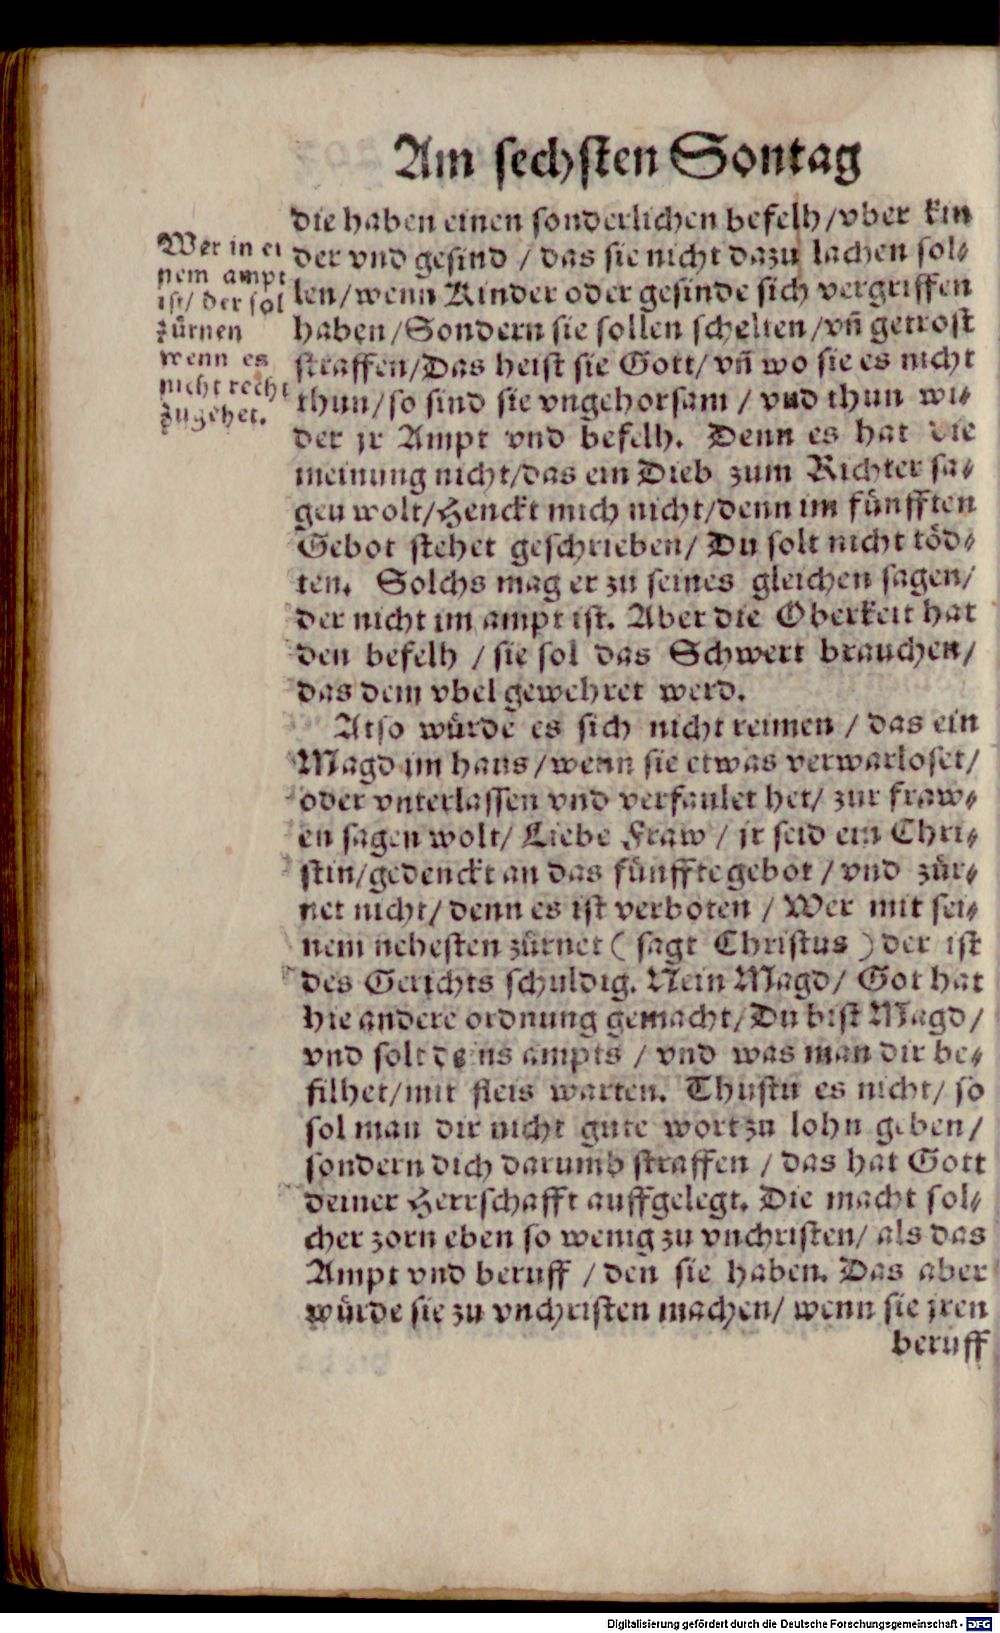 Am sechsten Sontag
Wer in ei
nem ampt
ist/ der sol
zürnen
wenn es
nicht recht
zugehet.
die haben einen sonderlichen befelh/vber kin
der vnd gesind / das sie nicht dazu lachen sol⸗
len/wenn Kinder oder gesinde sich vergriffen
haben/Sondern sie sollen schelten/vñ getrost
straffen/Das heist sie Gott/ vñ wo sie es nicht
thun/so sind sie vngehorsam / vnd thun wi⸗
der jr Ampt vnd befelh. Denn es hat die
meinung nicht/das ein Dieb zum Richter sa⸗
gen wolt/Henckt mich nicht/denn im fünfften
Gebot stehet geschrieben/ Du solt nicht töd⸗
ten. Solchs mag er zu seines gleichen sagen/
der nicht im ampt ist. Aber die Oberkeit hat
den befelh / sie sol das Schwert brauchen/
das dem vbel gewehret werd.
Also würde es sich nicht reimen / das ein
Magd im haus/wenn sie etwas verwarloset/
oder vnterlassen vnd verfaulet het/ zur fraw⸗
en sagen wolt/ Liebe Fraw / jr seid ein Chri⸗
stin/gedenckt an das fünffte gebot / vnd zür⸗
net nicht/ denn es ist verboten / Wer mit sei⸗
nem nehesten zürnet ( sagt Christus ) der ist
des Gerichts schuldig. Nein Magd/ Got hat
hie andere ordnung gemacht/Du bist Magd/
vnd solt deins ampts / vnd was man dir be⸗
filhet/mit fleis warten. Thustu es nicht/ so
sol man dir nicht gute wort zu lohn geben/
sondern dich darumb straffen / das hat Gott
deiner Herrschafft auffgelegt. Die macht sol⸗
cher zorn eben so wenig zu vnchristen/ als das
Ampt vnd beruff / den sie haben. Das aber
würde sie zu vnchristen machen/ wenn sie jren
beruff
Digitalisierung gefördert durch die Deutsche Forschungsgemeinschaft - DFG